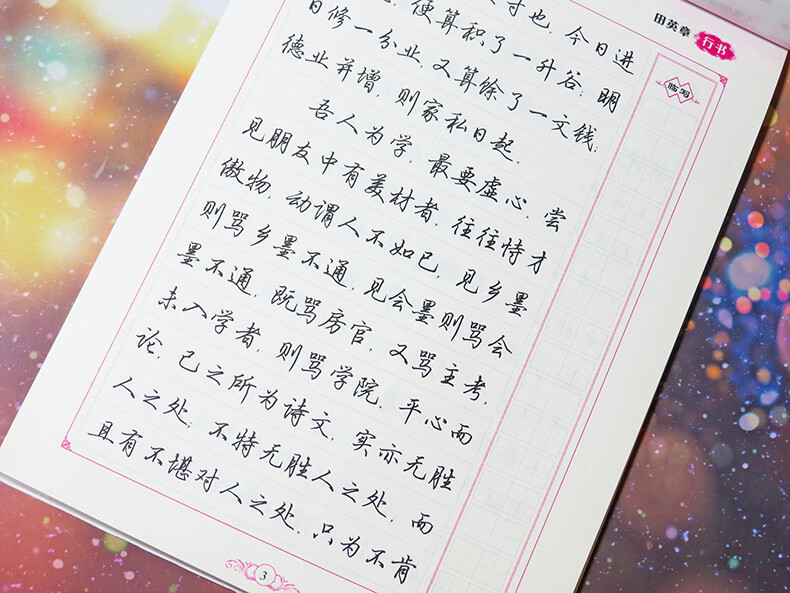 田英章 行书
临写
寸也。今日进
便算积了一升谷；明
日修一分业，又算馀了一文钱；
德业并增，则家私日起。
吾人为学，最要虚心。尝
见朋友中有美材者，往往恃才
傲物，动谓人不如己，见乡墨
则骂乡墨不通，见会墨则骂会
墨不通，既骂房官，又骂主考，
未入学者，则骂学院。平心而
论，己之所为诗文，实亦无胜
人之处；不特无胜人之处，而
且有不堪对人之处。只为不肯
3